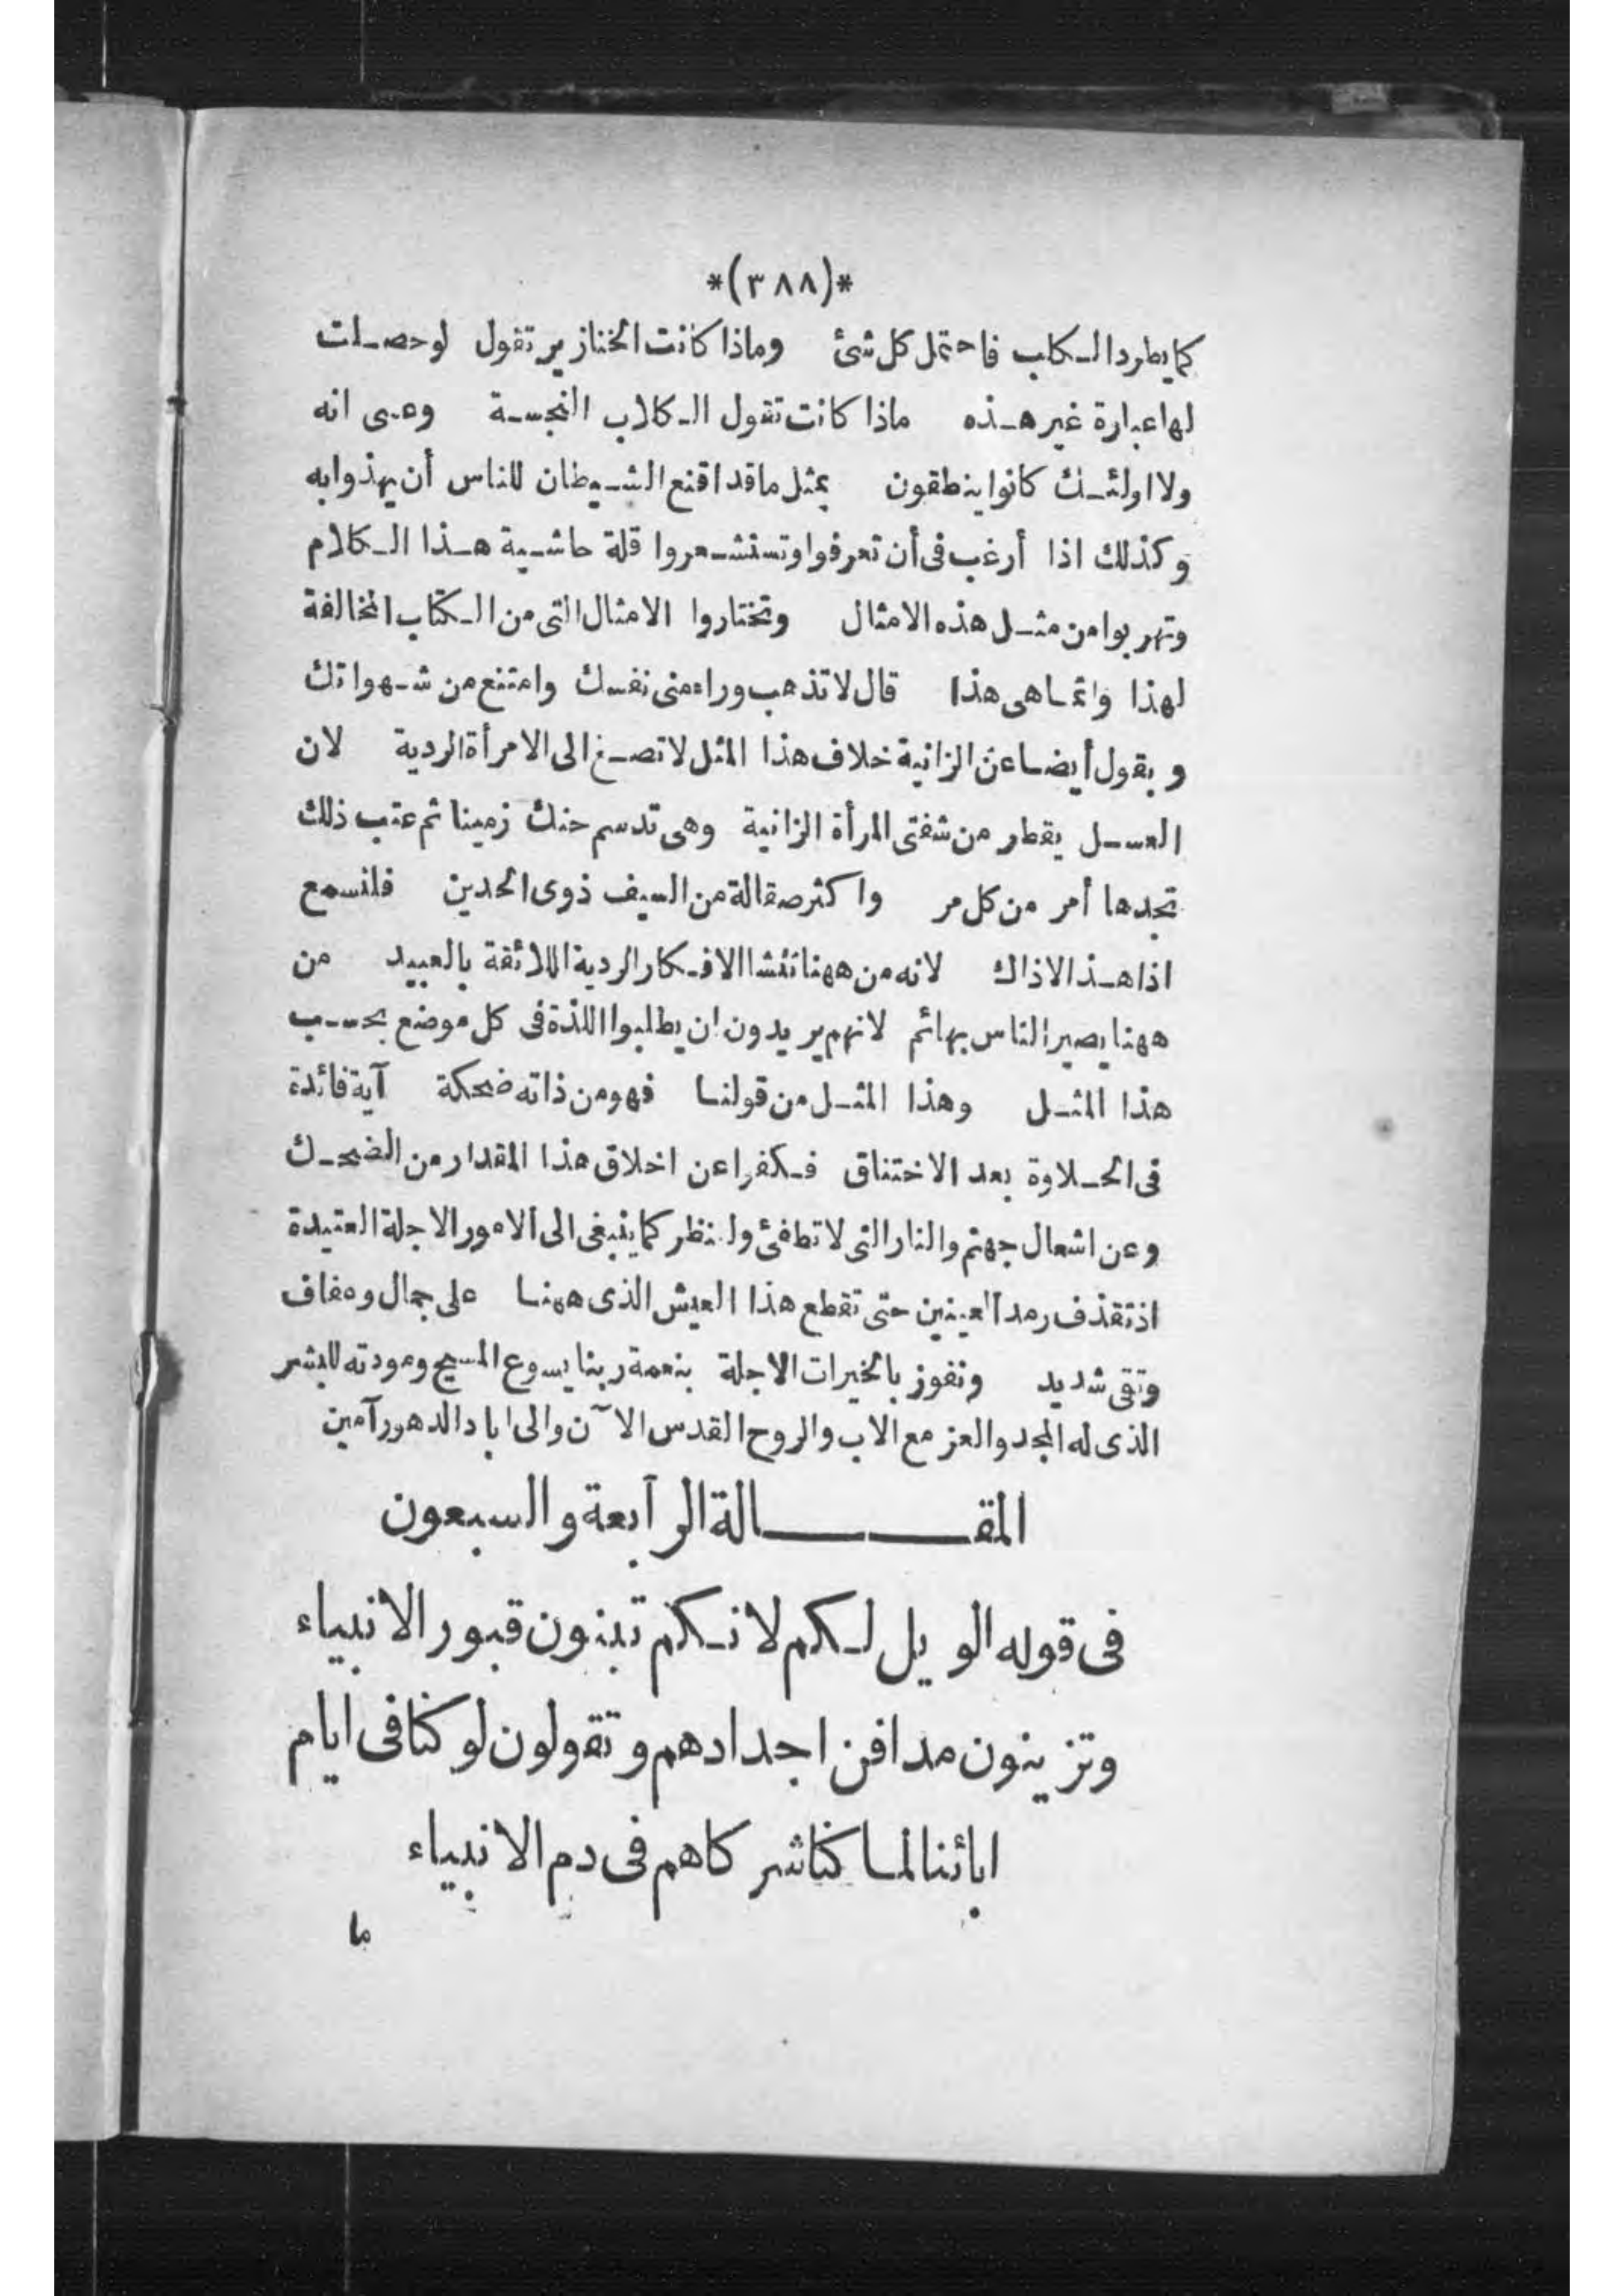 *(٣٨٨)*
كما يطرد الكاب فاحتمل كل شئ وماذا كانت الخنازير تقول لو حصلت
لها عبارة غير هذه ماذا كانت تقول الكلاب النجسة وعسى انه
ولا اولئك كانوا ينطقون بمثل ما قد اقنع الشيطان للناس أن يهذوا به
وكذلك اذا أرغب فى أن تعرفوا وتستشعروا قلة حاشية هذا الكلام
وتهربوا من مثل هذه الامثال وتختاروا الامثال التى من الكتاب المخالفة
لهذا وانما هى هذا قال لا تذهب وراء منى نفسك وامتنع من شهواتك
ويقول أيضا عن الزانية خلاف هذا المثل لا تصغ الى الامرأة الردية لان
العسل يقطر من شفتى المرأة الزانية وهى تدسم حنك زمينا ثم عقب ذلك
تجدها أمر من كل مر واكثر صقالة من السيف ذوى الحدين فلنسمع
اذا هذا لاذاك لانه من ههنا تنشا الافكار الردية اللائقة بالعبيد من
ههنا يصير الناس بهائم لانهم يريدون ان يطلبوا اللذة فى كل موضع بحسب
هذا المثل وهذا المثل من قولنا فهو من ذاته ضحكة آية فائدة
فى الحلاوة بعد الاختناق فكفرا عن اخلاق هذا المقدار من الضحك
وعن اشعال جهنم والنار التى لا تطفئ ولننظر كما ينبغى الى الامور الاجلة العتيدة
اذ تقذف رمد العينين حتى تقطع هذا العيش الذى ههنا على جمال وعفاف
وتقى شديد ونفوز بالخيرات الاجلة بنعمة ربنا يسوع المسيح ومودته للبشر
الذى له المجد والعز مع الاب والروح القدس الآن والى اباد الدهور آمين
المقالة الرابعة والسبعون
فى قوله الويل لكم لانكم تبنون قبور الانبياء
وتزينون مدافن اجدادهم وتقولون لو كنا فى ايام
ابائنا لما كنا شركاهم فى دم الانبياء
ما